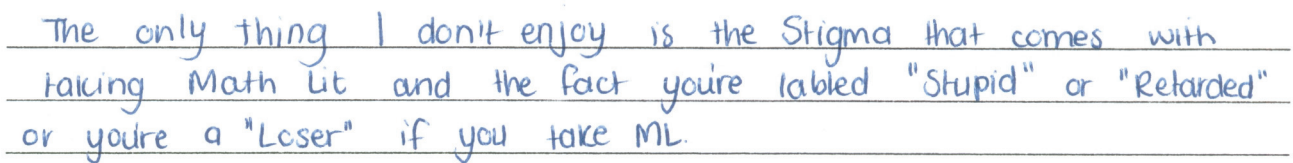 The only thing I don't enjoy is the Stigma that comes with
taking Math Lit and the fact you're labled "Stupid" or "Retarded"
or you're a "Loser" if you take ML.